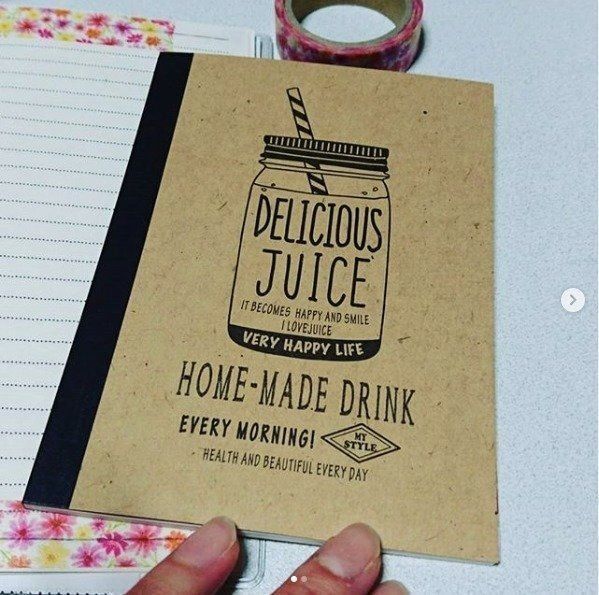 DELICIOUS
JUICE
IT BECOMES HAPPY AND SMILE
I LOVEJUICE
VERY HAPPY LIFE
HOME-MADE DRINK
EVERY MORNING!
MY
STYLE
HEALTH AND BEAUTIFUL EVERY DAY